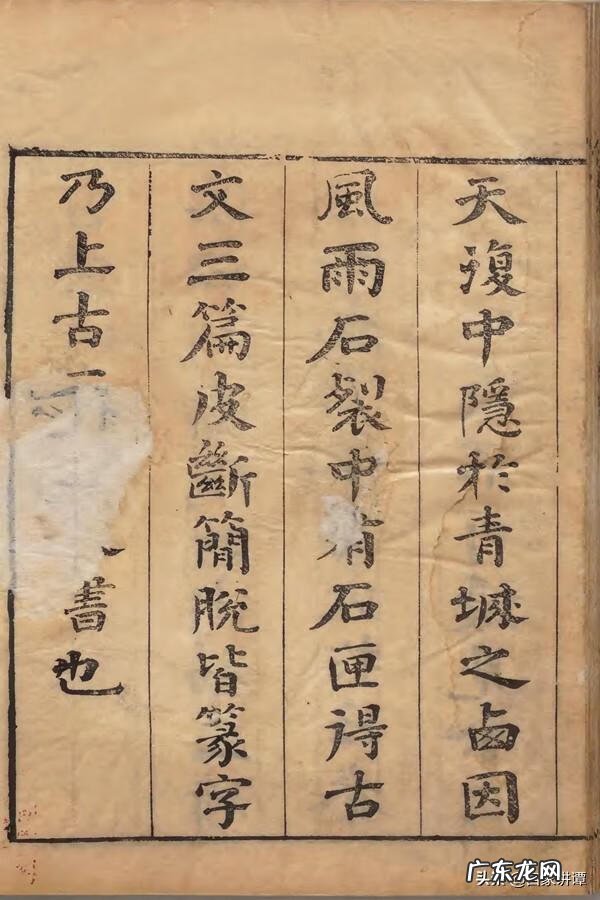 天復中隱於青城之卥因
風雨石裂中有石匣得古
文三篇皮斷簡脫皆篆字
乃上古
書也
广东龙网